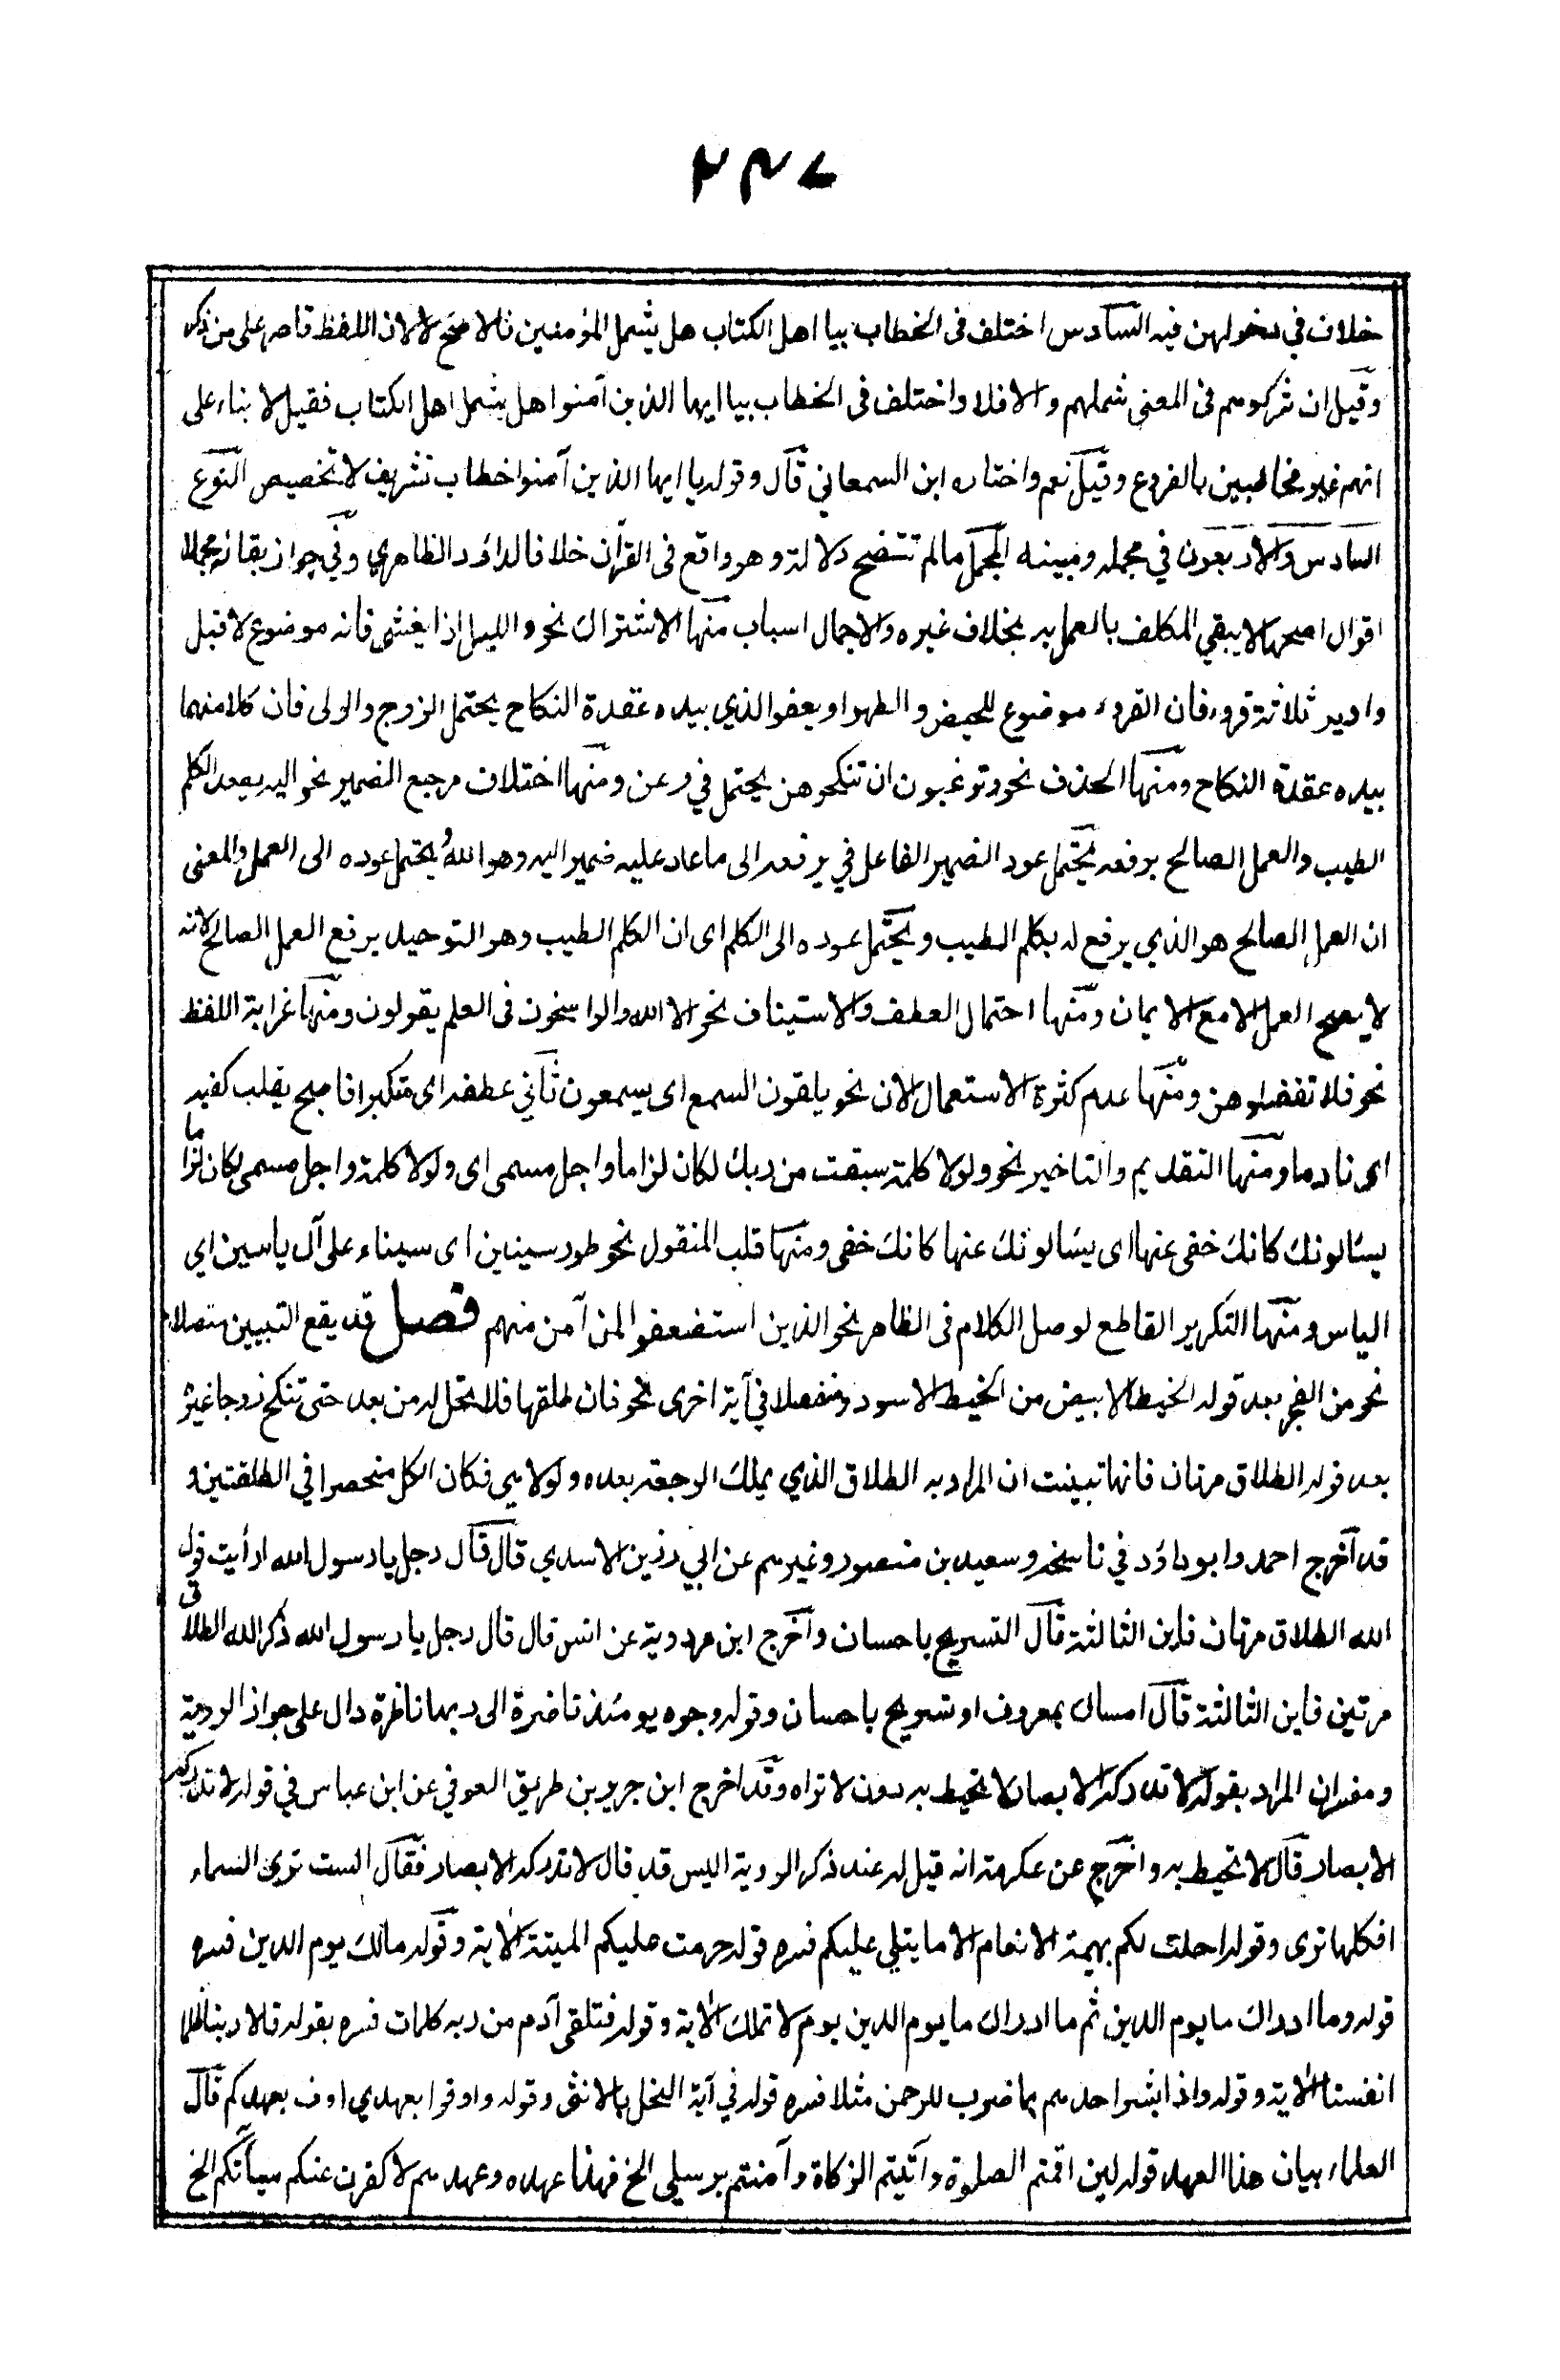 ٢٣٧
خلاف في دخولهن فيه السادس اختلف فى الخطاب بيا اهل الكتاب هل يشمل المؤمنين فالاصح لا لان اللفظ قاصر على من ذكر
وقيل ان شركوهم فى المعنى شملهم والا فلا واختلف فى الخطاب بيا ايها الذين آمنوا هل يشمل اهل الكتاب فقيل لا بناء على
انهم غير مخاطبين بالفروع وقيل نعم واختاره ابن السمعاني قال وقوله يا ايها الذين آمنوا خطاب تشريف لا تخصيص النوع
السادس والاربعون في مجمله ومبينه المجمل مالم تتضح دلالته وهو واقع فى القرآن خلافا لداؤد الظاهري وفي جواز بقائه مجملا
اقوال اصحها لا يبقي المكلف بالعمل به بخلاف غيره والاجمال اسباب منها الاشتراك نحو والليل اذا يغشى فانه موضوع لاقبل
وادبر ثلاثة قروء فان القرء موضوع للحيض والطهر او يعفوا الذي بيده عقدة النكاح يحتمل الزوج والولى فان كلا منهما
بيده عقدة النكاح ومنها الحذف نحو وترغبون ان تنكحوهن يحتمل في وعن ومنها اختلاف مرجع الضمير نحو اليه يصعد الكلم
الطيب والعمل الصالح يرفعه يحتمل عود الضمير الفاعل في يرفعه الى ما عاد عليه ضمير اليه وهو الله ويحتمل عوده الى العمل والمعنى
ان العمل الصالح هو الذي يرفع له بكلم الطيب ويحتمل عوده الى الكلم اى ان الكلم الطيب وهو التوحيد يرفع العمل الصالح لانه
لا يصح العمل الا مع الايمان ومنها احتمال العطف والاستيناف نحو الا الله والراسخون فى العلم يقولون ومنها غرابة اللفظ
نحو فلا تعضلوهن ومنها عدم كثرة الاستعمال الان نحو يلقون السمع اى يسمعون ثاني عطفه اى متكبرا فاصبح يقلب كفيه
اى نادما ومنها التقديم والتاخير نحو ولولا كلمة سبقت من ربك لكان لزاما واجل مسمى اى ولولا كلمة واجل مسمى لكان لزاما
يسالونك كانك خفى عنها اى يسالونك عنها كانك خفى ومنها قلب المنقول نحو طور سينين اى سيناء على آل ياسين اي
الياس ومنها التكرير القاطع لوصل الكلام فى الظاهر نحو الذين استضعفوا لمن آمن منهم فصل قد يقع التبيين متصلا
نحو من الفجر بعد قوله الخيط الابيض من الخيط الاسود ومنفصلا في آية اخرى نحو فان طلقها فلا تحل له من بعد حتى تنكح زوجا غيره
بعد قوله الطلاق مرتان فانها تبينت ان المراد به الطلاق الذي يملك الرجعة بعده ولولا هي فكان الكل منحصرا في الطلقتين و
قد اخرج احمد وابوداؤد في ناسخه وسعيد بن منصور وغيرهم عن ابي رزين الاسدي قال قال رجل يا رسول الله ارأيت قول
الله الطلاق مرتان فاين الثالثة قال التسريح باحسان واخرج ابن مردوية عن انس قال قال رجل يا رسول الله ذكر الله الطلاق
مرتين فاين الثالثة قال امساك بمعروف او تسريح باحسان وقوله وجوه يومئذ ناضرة الى ربها ناظرة دال على جواز الروية
ومفسر ان المراد بقوله لا تدركه الابصار لا تحيط به دون لا تراه وقد اخرج ابن جرير بن طريق العوفي عن ابن عباس في قوله لا تدركه
الابصار قال لا تحيط به واخرج عن عكرمة انه قيل له عند ذكر الروية اليس قد قال لا تدركه الابصار فقال الست ترى السماء
افكلها ترى وقوله احلت لكم بهيمة الانعام الا ما يتلى عليكم فسره قوله حرمت عليكم الميتة الآية وقوله مالك يوم الدين فسره
قوله وما ادراك ما يوم الدين ثم ما ادراك ما يوم الدين يوم لا تملك الآية وقوله فتلقى آدم من ربه كلمات فسره بقوله قالا ربنا ظلمنا
انفسنا الآية وقوله واذا بشر احدهم بما ضرب للرحمن مثلا فسره قوله في آية النحل بالانثى وقوله واوفوا بعهدي اوف بعهدكم قال
العلماء بيان هذا العهد قوله لئن اقمتم الصلوة وآتيتم الزكاة وآمنتم برسلى الخ فهذا عهده وعهدهم لاكفرن عنكم سيآتكم الخ